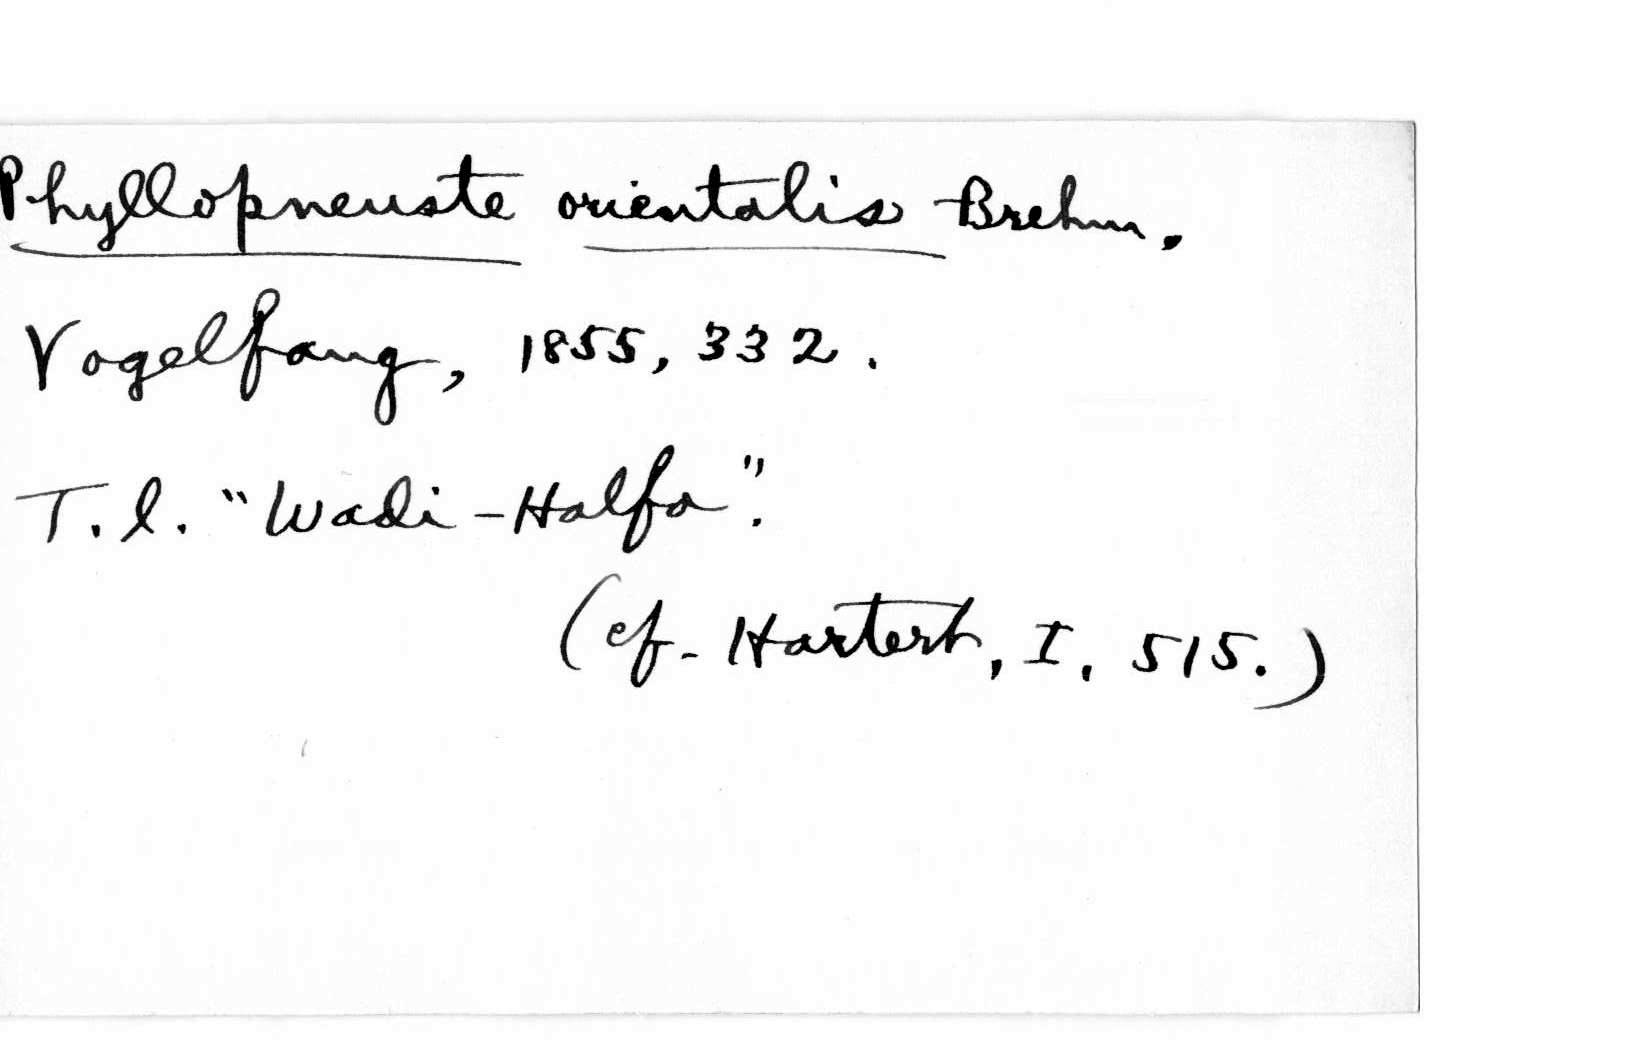 Phyllopneuste orientalis Brehm.
Vogelfang, 1855, 332.
T.l. "Wadi-Halfa".
(cf. Hartert, I, 515.)